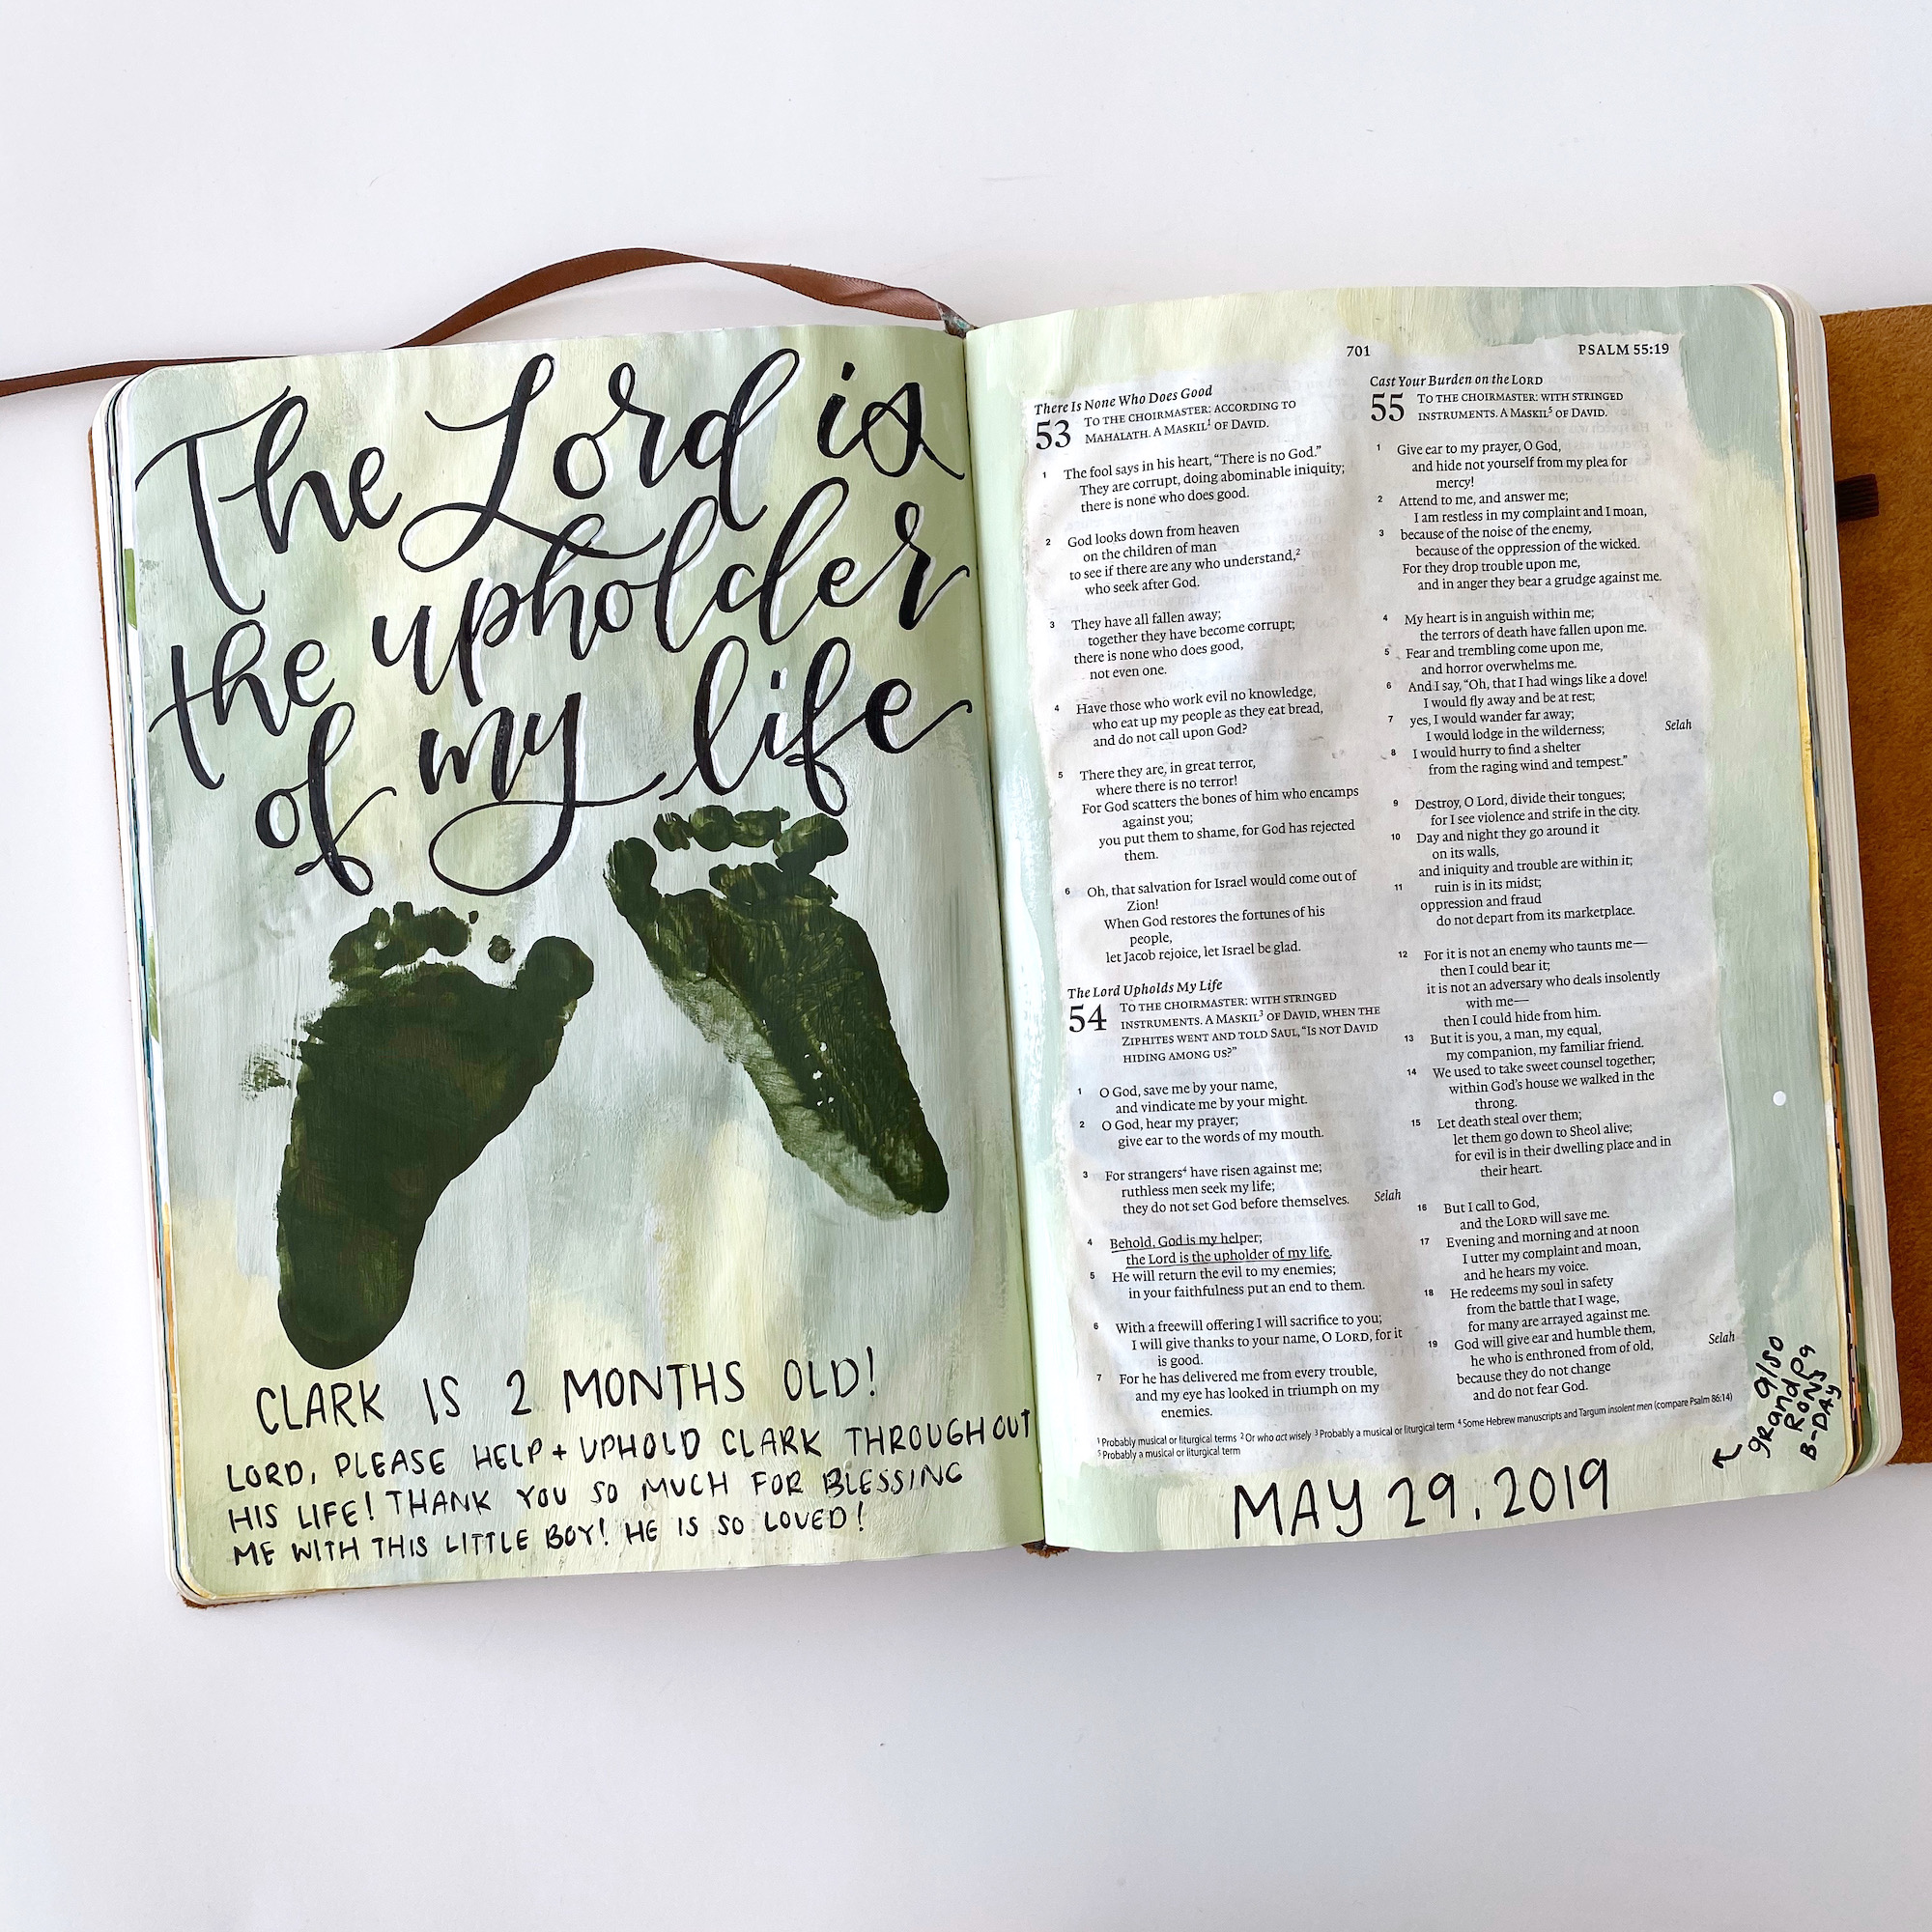 The Lord is
the upholder
of my life
CLARK IS 2 MONTHS OLD!
LORD, PLEASE HELP + UPHOLD CLARK THROUGHOUT
HIS LIFE! THANK YOU SO MUCH FOR BLESSING
ME WITH THIS LITTLE BOY! HE IS SO LOVED!
701
PSALM 55:19
There Is None Who Does Good
53 TO THE CHOIRMASTER: ACCORDING TO
MAHALATH. A MASKIL¹ OF DAVID.
1 The fool says in his heart, “There is no God.”
They are corrupt, doing abominable iniquity;
there is none who does good.
2 God looks down from heaven
on the children of man
to see if there are any who understand,²
who seek after God.
3 They have all fallen away;
together they have become corrupt;
there is none who does good,
not even one.
4 Have those who work evil no knowledge,
who eat up my people as they eat bread,
and do not call upon God?
5 There they are, in great terror,
where there is no terror!
For God scatters the bones of him who encamps
against you;
you put them to shame, for God has rejected
them.
6 Oh, that salvation for Israel would come out of
Zion!
When God restores the fortunes of his
people,
let Jacob rejoice, let Israel be glad.
The Lord Upholds My Life
54 TO THE CHOIRMASTER: WITH STRINGED
INSTRUMENTS. A MASKIL³ OF DAVID, WHEN THE
ZIPHITES WENT AND TOLD SAUL, “IS NOT DAVID
HIDING AMONG US?”
1 O God, save me by your name,
and vindicate me by your might.
2 O God, hear my prayer;
give ear to the words of my mouth.
3 For strangers⁴ have risen against me;
ruthless men seek my life;
they do not set God before themselves. Selah
4 Behold, God is my helper;
the Lord is the upholder of my life.
5 He will return the evil to my enemies;
in your faithfulness put an end to them.
6 With a freewill offering I will sacrifice to you;
I will give thanks to your name, O LORD, for it
is good.
7 For he has delivered me from every trouble,
and my eye has looked in triumph on my
enemies.
Cast Your Burden on the LORD
55 TO THE CHOIRMASTER: WITH STRINGED
INSTRUMENTS. A MASKIL⁵ OF DAVID.
1 Give ear to my prayer, O God,
and hide not yourself from my plea for
mercy!
2 Attend to me, and answer me;
I am restless in my complaint and I moan,
3 because of the noise of the enemy,
because of the oppression of the wicked.
For they drop trouble upon me,
and in anger they bear a grudge against me.
4 My heart is in anguish within me;
the terrors of death have fallen upon me.
5 Fear and trembling come upon me,
and horror overwhelms me.
6 And I say, “Oh, that I had wings like a dove!
I would fly away and be at rest;
7 yes, I would wander far away;
I would lodge in the wilderness; Selah
8 I would hurry to find a shelter
from the raging wind and tempest.”
9 Destroy, O Lord, divide their tongues;
for I see violence and strife in the city.
10 Day and night they go around it
on its walls,
and iniquity and trouble are within it;
11 ruin is in its midst;
oppression and fraud
do not depart from its marketplace.
12 For it is not an enemy who taunts me—
then I could bear it;
it is not an adversary who deals insolently
with me—
then I could hide from him.
13 But it is you, a man, my equal,
my companion, my familiar friend.
14 We used to take sweet counsel together;
within God’s house we walked in the
throng.
15 Let death steal over them;
let them go down to Sheol alive;
for evil is in their dwelling place and in
their heart.
16 But I call to God,
and the LORD will save me.
17 Evening and morning and at noon
I utter my complaint and moan,
and he hears my voice.
18 He redeems my soul in safety
from the battle that I wage,
for many are arrayed against me.
19 God will give ear and humble them,
he who is enthroned from of old, Selah
because they do not change
and do not fear God.
¹ Probably musical or liturgical terms ² Or who act wisely ³ Probably a musical or liturgical term ⁴ Some Hebrew manuscripts and Targum insolent men (compare Psalm 86:14)
⁵ Probably a musical or liturgical term
MAY 29, 2019
also
grandpa
RON'S
B-DAY